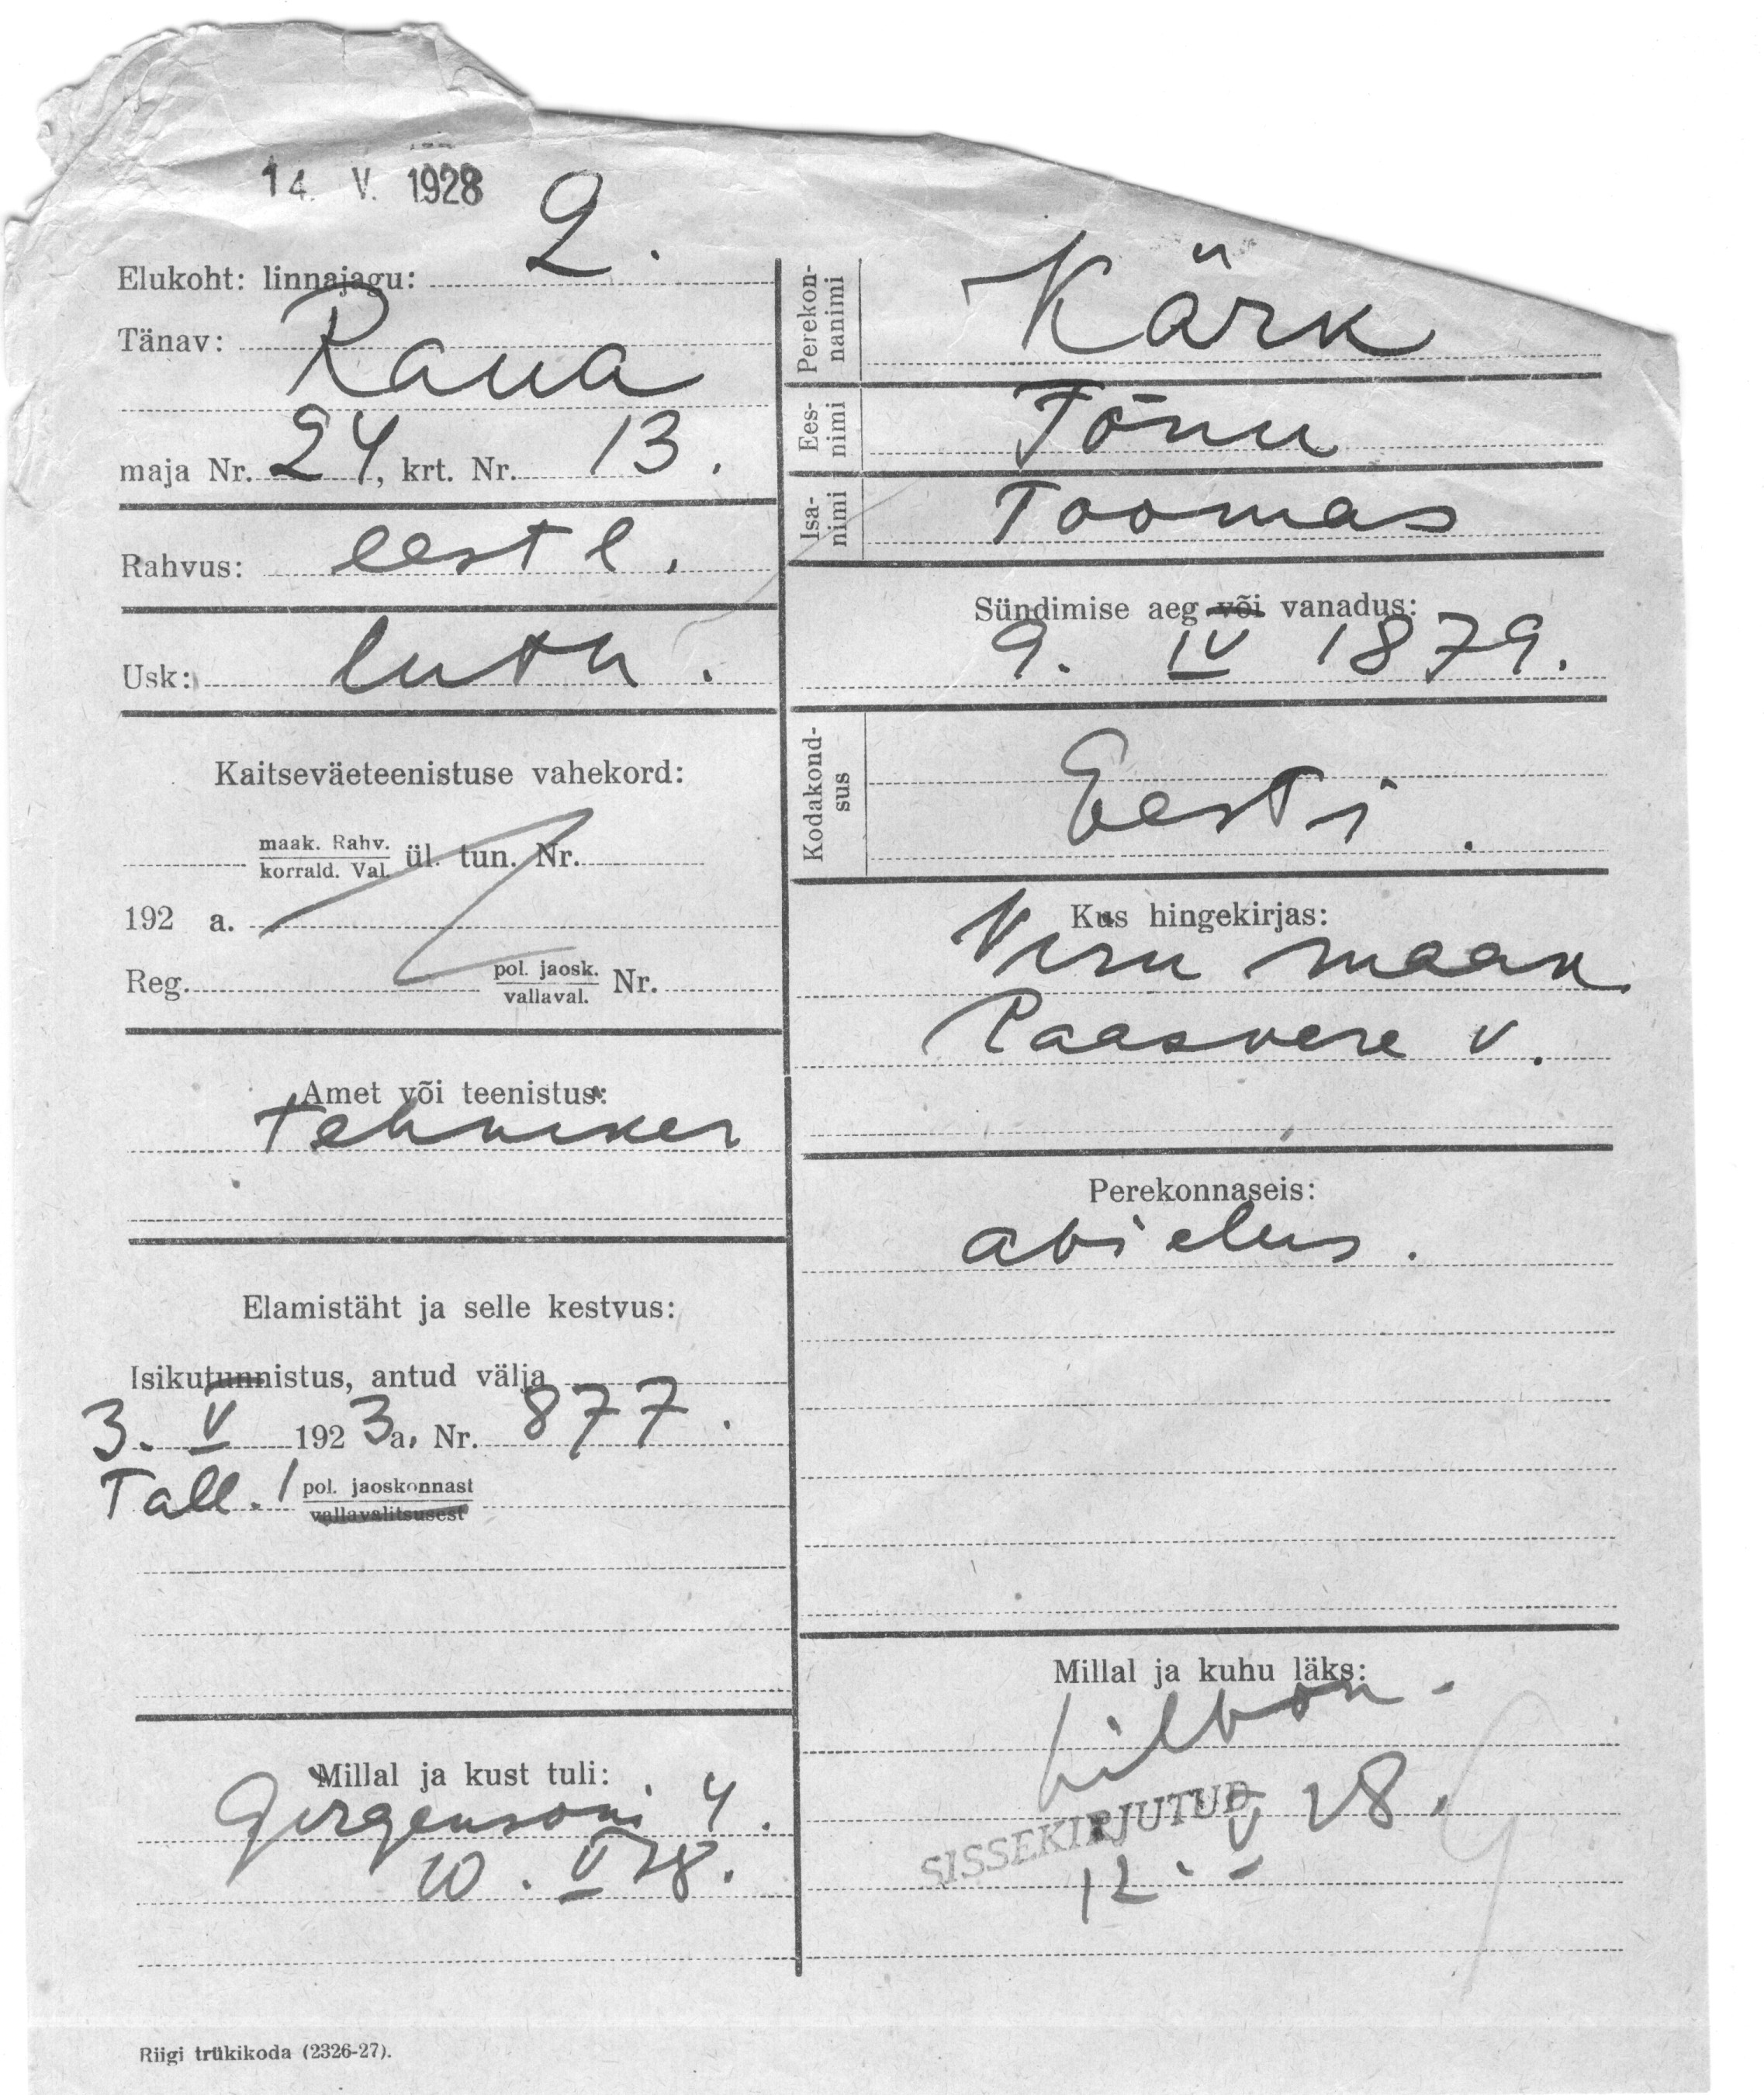 14. V. 1928
Elukoht: linnajagu: 2.
Tänav: Raua
maja Nr. 24, krt. Nr. 13.
Rahvus: eestl.
Usk: luth.
Kaitseväeteenistuse vahekord:
maak. Rahv.
korrald. Val. ül. tun. Nr.
192 a.
Reg. pol. jaosk. Nr.
vallaval.
Amet või teenistus:
Tehniker
Elamistäht ja selle kestvus:
Isikutunnistus, antud välja
3. V 1923 a. Nr. 877.
Tall. 1 pol. jaoskonnast
vallavalitsusest
Millal ja kust tuli:
Girgensoni 4.
10. V 28.
Perekon-
nanimi Kärk
Ees-
nimi Tõnu
Isa-
nimi Toomas
Sündimise aeg või vanadus:
9. IV 1879.
Kodakond-
sus Eesti.
Kus hingekirjas:
Viru maak.
Paasvere v.
Perekonnaseis:
abielus.
Millal ja kuhu läks:
SISSEKIRJUTUD
12. V 28.
Riigi trükikoda (2326-27).